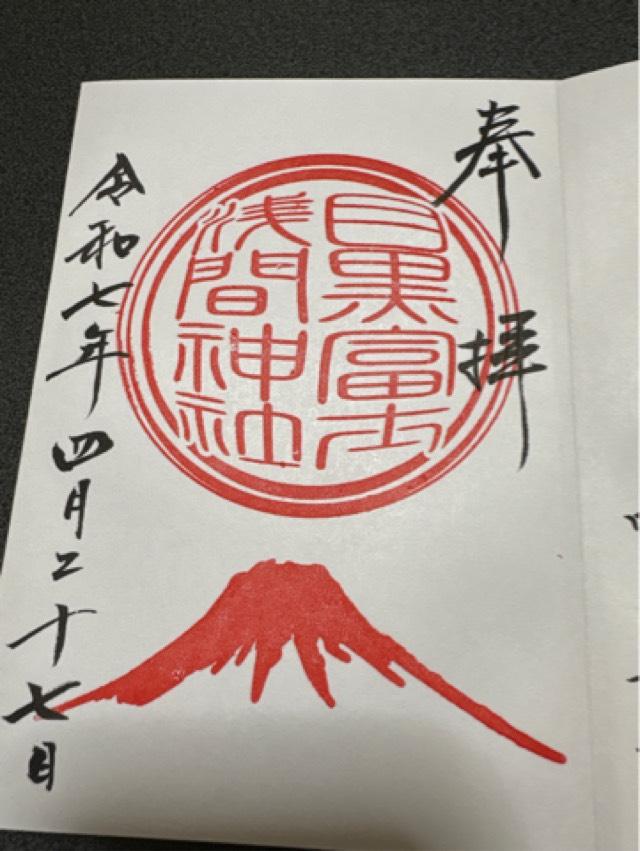 奉拝
目黒富士
浅間神社
令和七年四月二十七日